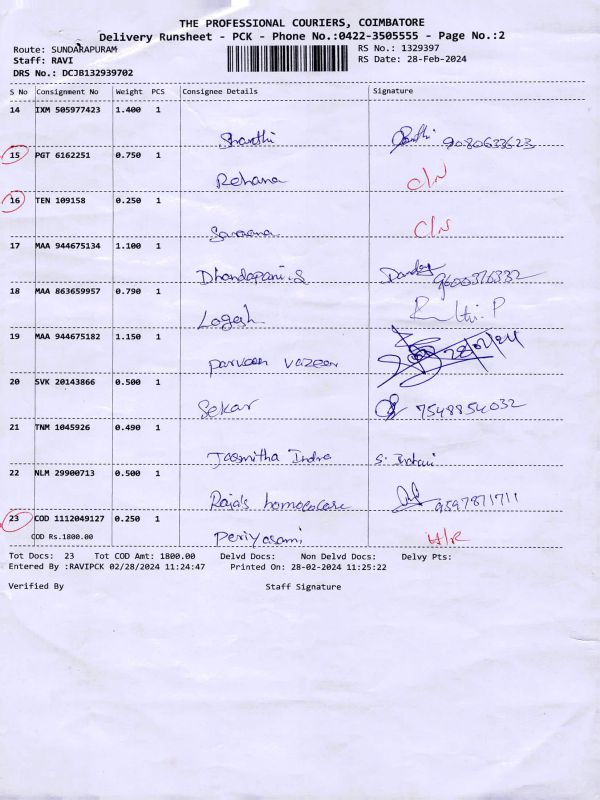 THE PROFESSIONAL COURIERS, COIMBATORE
Delivery Runsheet - PCK - Phone No.:0422-3505555 - Page No.:2
Route: SUNDARAPURAM RS No.: 1329397
Staff: RAVI RS Date: 28-Feb-2024
DRS No.: DCJB132939702
S No Consignment No Weight PCS Consignee Details Signature
14 IXM 505977423 1.400 1
Sharthi 9080633623
15 PGT 6162251 0.750 1
Rehana C/N
16 TEN 109158 0.250 1
Saravana C/N
17 MAA 944675134 1.100 1
Dhandapani.S 9600376332
18 MAA 863659957 0.790 1
Logesh
19 MAA 944675182 1.150 1
parveen vazeer 28/02/24
20 SVK 20143866 0.500 1
Sekar 7548854032
21 TNM 1045926 0.490 1
Jasmitha Indra
22 NLM 29900713 0.500 1
Raja's homoeocare 9597871711
23 COD 1112049127 0.250 1
COD Rs.1800.00 Periyasami
Tot Docs: 23 Tot COD Amt: 1800.00 Delvd Docs: Non Delvd Docs: Delvy Pts:
Entered By :RAVIPCK 02/28/2024 11:24:47 Printed On: 28-02-2024 11:25:22
Verified By Staff Signature